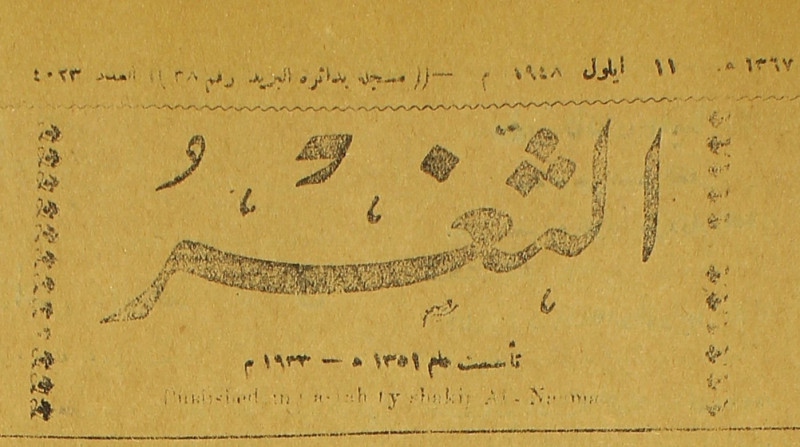 ١٣٦٧ هـ. ١١ ايلول ١٩٤٨ م —(( مسجلة بدائرة البريد رقم ٣٨ )) العدد ٤٠٢٣
الثغر
تأسست عام ١٣٥١ هـ — ١٩٣٣ م
Published in Basrah by Shakir Al-